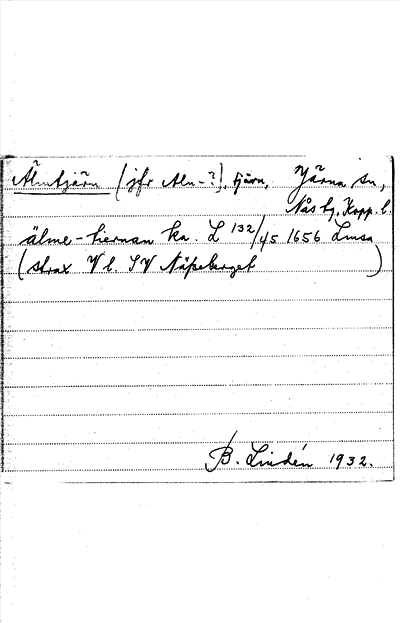 Älmtjärn (jfr Alm-?), tjärn, Järna sn,
Nås tg, Kopp. l.
älme-tiernan ka. L 132/45 1656 Lmsa
(strax V l. SV Näsberget)
B. Lindén 1932.